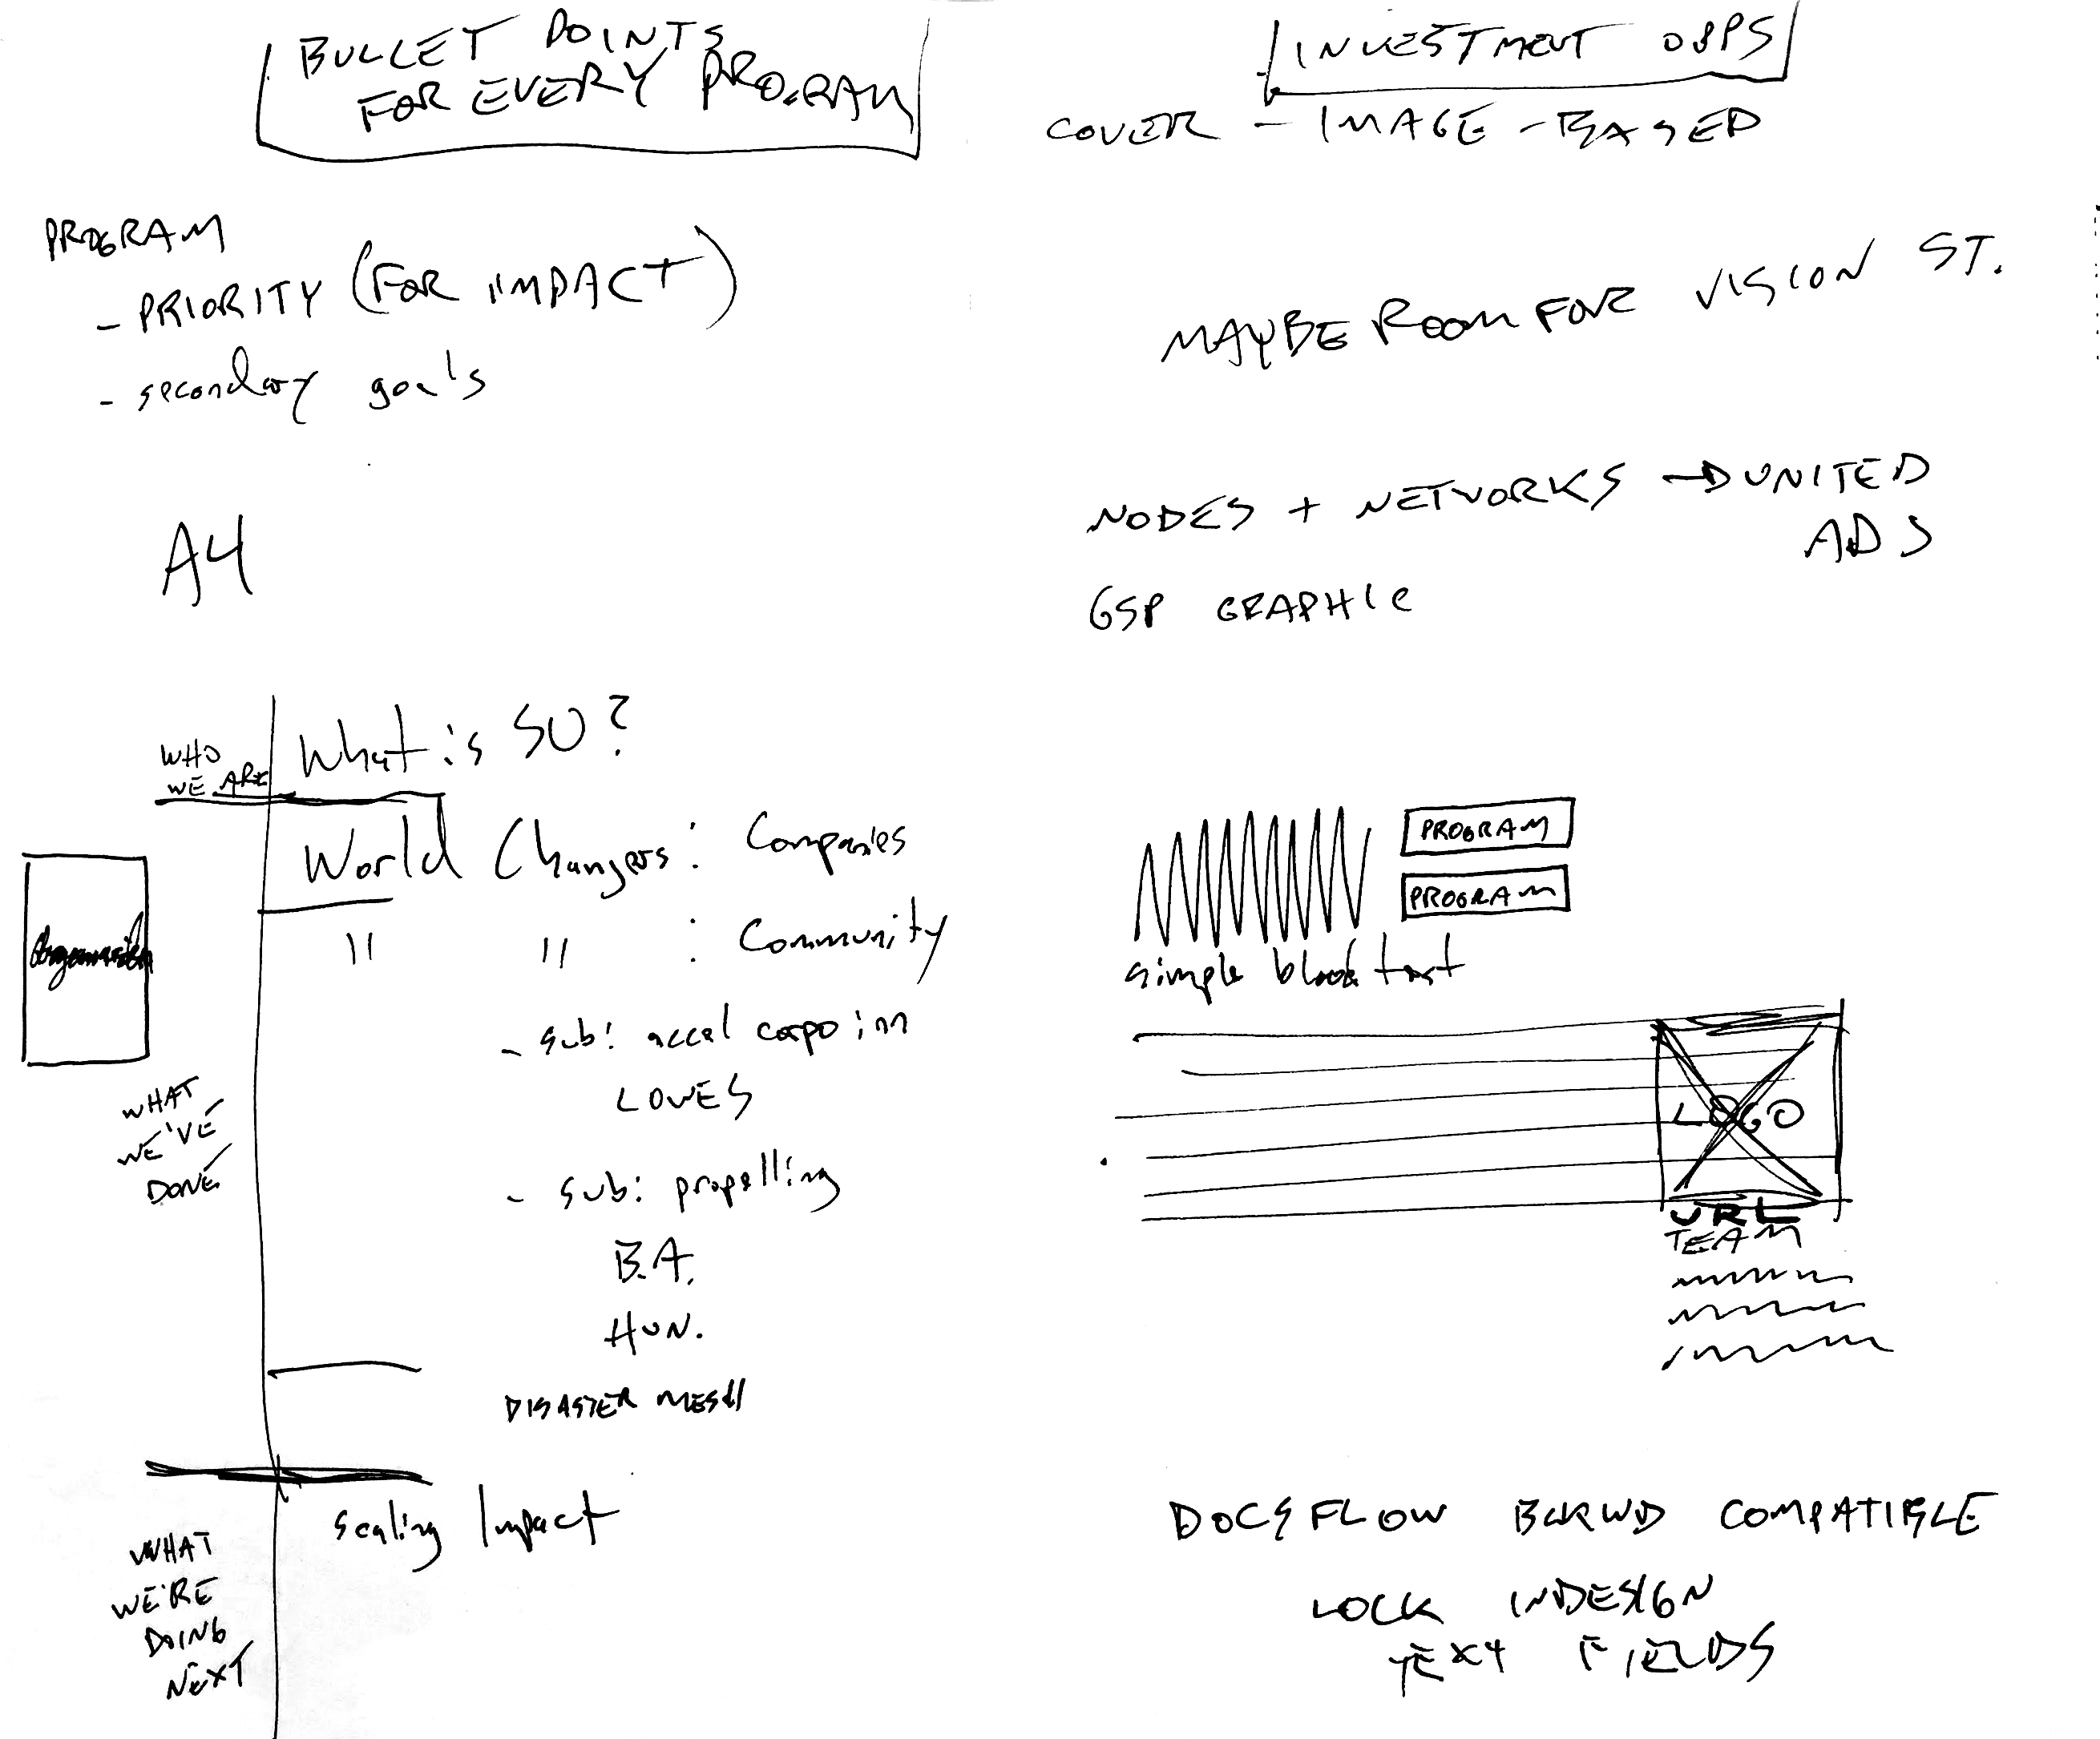 BULLET POINTS
FOR EVERY PROGRAM
PROGRAM
- PRIORITY (FOR IMPACT)
- secondary goals
A4
WHO
WE ARE
What is SU?
World Changers: Companies
" " : Community
- sub: accel corpo inn
LOWES
- sub: propelling
B.A.
HON.
DISASTER MESH
WHAT
WE'VE
DONE
Scaling Impact
WHAT
WE'RE
DOING
NEXT
INVESTMENT OPPS
COVER - IMAGE-BASED
MAYBE ROOM FOR VISION ST.
NODES + NETWORKS → UNITED
ADS
GSP GRAPHIC
PROGRAM
PROGRAM
simple block text
LOGO
URL
TEAM
DOCS FLOW BCKWD COMPATIBLE
LOCK INDESIGN
TEXT FIELDS